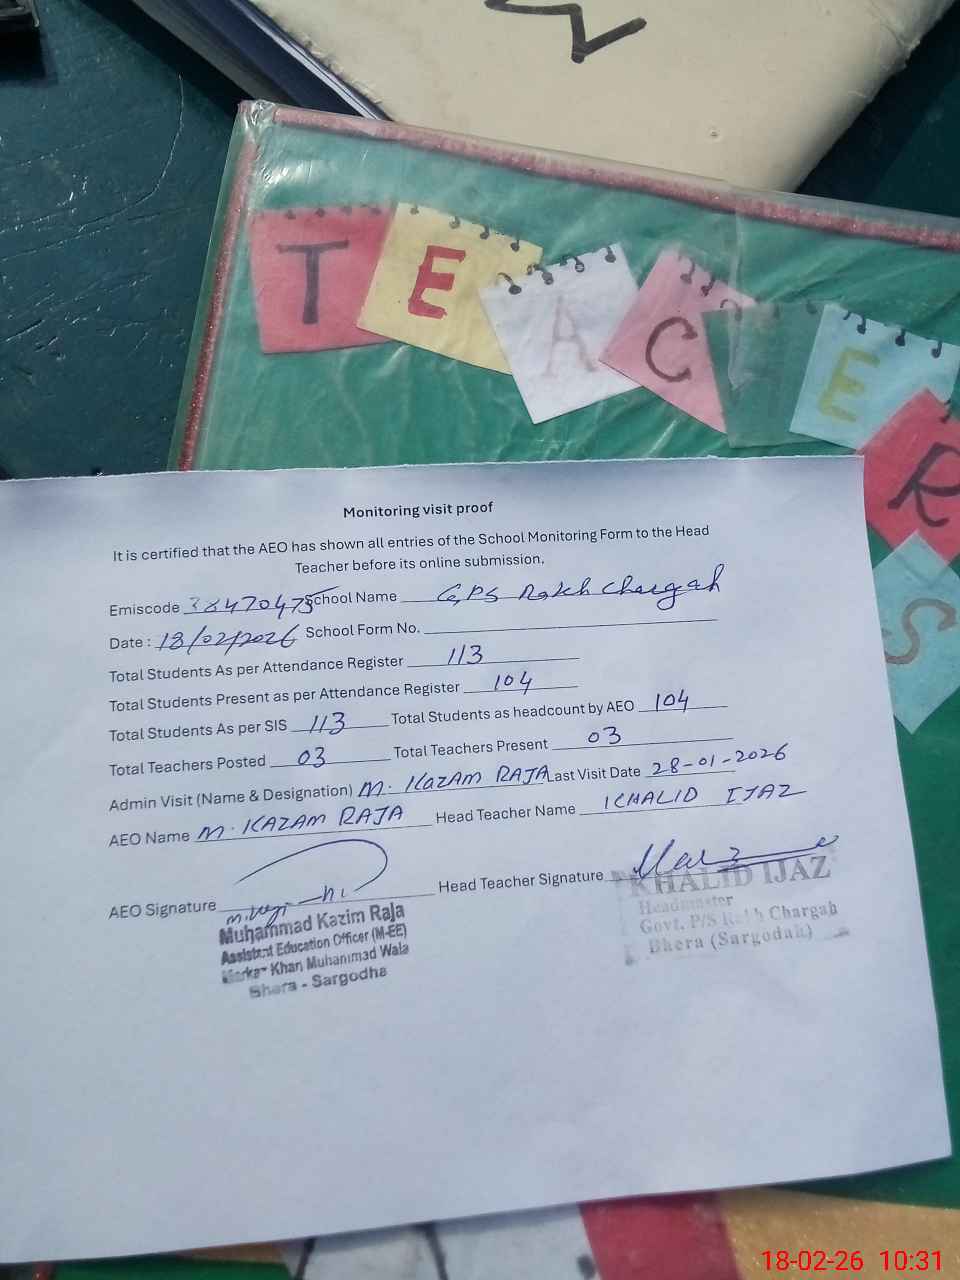 TEACHERS
Monitoring visit proof
It is certified that the AEO has shown all entries of the School Monitoring Form to the Head
Teacher before its online submission.
Emiscode 38470475 School Name GPS Rakh Chargah
Date : 18/02/2026 School Form No.
Total Students As per Attendance Register 113
Total Students Present as per Attendance Register 104
Total Students As per SIS 113 Total Students as headcount by AEO 104
Total Teachers Posted 03 Total Teachers Present 03
Admin Visit (Name & Designation) M. KAZAM RAJA Last Visit Date 28-01-2026
AEO Name M. KAZAM RAJA Head Teacher Name KHALID IJAZ
AEO Signature Head Teacher Signature
Muhammad Kazim Raja
Assistant Education Officer (M-EE)
Markaz Khan Muhammad Wala
Bhera - Sargodha
KHALID IJAZ
Headmaster
Govt. P/S Rakh Chargah
Bhera (Sargodah)
18-02-26 10:31